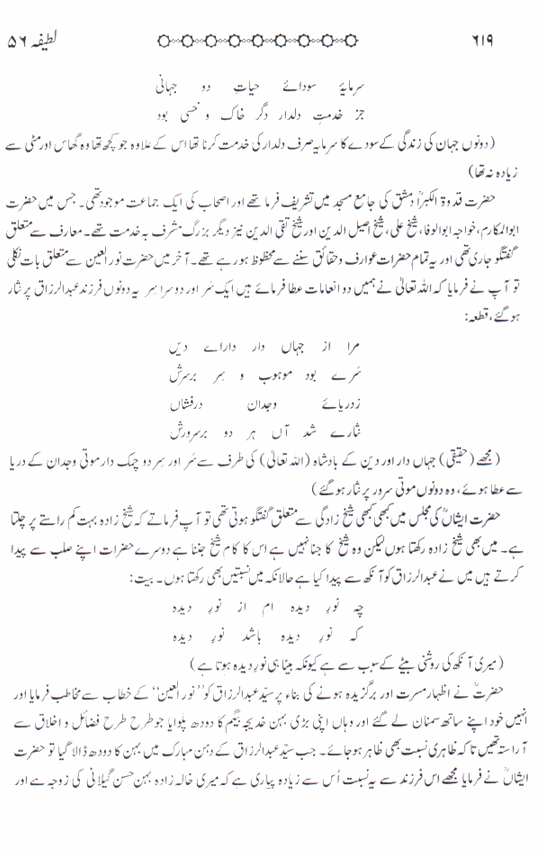 ۶۱۹ لطیفہ ۵۶
سرمایۂ سودائے حیاتِ دو جہانی
جز خدمتِ دلدار دگر خاک و خسی بود
(دونوں جہان کی زندگی کے سودے کا سرمایہ صرف دلدار کی خدمت کرنا تھا اس کے علاوہ جو کچھ تھا وہ گھاس اور مٹی سے
زیادہ نہ تھا)
حضرت قدوۃ الکبراؒ دمشق کی جامع مسجد میں تشریف فرما تھے اور اصحاب کی ایک جماعت موجود تھی۔ جس میں حضرت
ابوالمکارم، خواجہ ابوالوفا، شیخ علی، شیخ اصیل الدین اور شیخ تقی الدین نیز دیگر بزرگ مشرف بہ خدمت تھے۔ معارف سے متعلق
گفتگو جاری تھی اور یہ تمام حضرات عوارف و حقائق سننے سے محظوظ ہو رہے تھے۔ آخر میں حضرت نورالعین سے متعلق بات نکلی
تو آپ نے فرمایا کہ اللہ تعالیٰ نے ہمیں دو انعامات عطا فرمائے ہیں ایک سَر اور دوسرا سِر یہ دونوں فرزند عبدالرزاق پر نثار
ہو گئے، قطعہ:
مرا از جہاں دار داراے دیں
سَرے بود موہوب و سِر برسرش
زدریائے وجدان درفشاں
نثارے شد آں ہر دو برسرورش
(مجھے (حقیقی) جہاں دار اور دین کے بادشاہ (اللہ تعالیٰ) کی طرف سے سَر اور سِر دو چمک دار موتی وجدان کے دریا
سے عطا ہوئے، وہ دونوں موتی سرور پر نثار ہو گئے)
حضرت ایشاںؒ کی مجلس میں کبھی کبھی شیخ زادگی سے متعلق گفتگو ہوتی تھی تو آپ فرماتے کہ شیخ زادہ بہت کم راستے پر چلتا
ہے۔ میں بھی شیخ زادہ رکھتا ہوں لیکن وہ شیخ کا جنا نہیں ہے اس کا کام شیخ جننا ہے دوسرے حضرات اپنے صلب سے پیدا
کرتے ہیں میں نے عبدالرزاق کو آنکھ سے پیدا کیا ہے حالانکہ میں نسبتیں بھی رکھتا ہوں۔ بیت:
چہ نورِ دیدہ ام از نورِ دیدہ
کہ نورِ دیدہ باشد نورِ دیدہ
(میری آنکھ کی روشنی بیٹے کے سبب سے ہے کیونکہ بیٹا ہی نورِ دیدہ ہوتا ہے)
حضرتؒ نے اظہار مسرت اور برگزیدہ ہونے کی بناء پر سیّد عبدالرزاق کو ’’نورالعین‘‘ کے خطاب سے مخاطب فرمایا اور
انہیں خود اپنے ساتھ سمنان لے گئے اور وہاں اپنی بڑی بہن خدیجہ بیگم کا دودھ پلوایا جو طرح طرح فضائل و اخلاق سے
آراستہ تھیں تاکہ ظاہری نسبت بھی ظاہر ہو جائے۔ جب سیّد عبدالرزاق کے دہن مبارک میں بہن کا دودھ ڈالا گیا تو حضرت
ایشاںؒ نے فرمایا مجھے اس فرزند سے یہ نسبت اُس سے زیادہ پیاری ہے کہ میری خالہ زادہ بہن حسن گیلانی کی زوجہ ہے اور